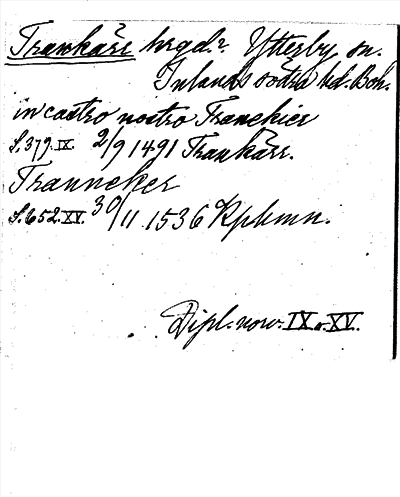 Trankärr hrgd? Ytterby sn.
Inlands södra hd. Boh.
in castro nostro Tranekier
S. 379. IX. 2/9 1491 Trankärr.
Tranneker
S. 652. XV. 30/11 1536 Kphmn.
Dipl. norv. IX o. XV.